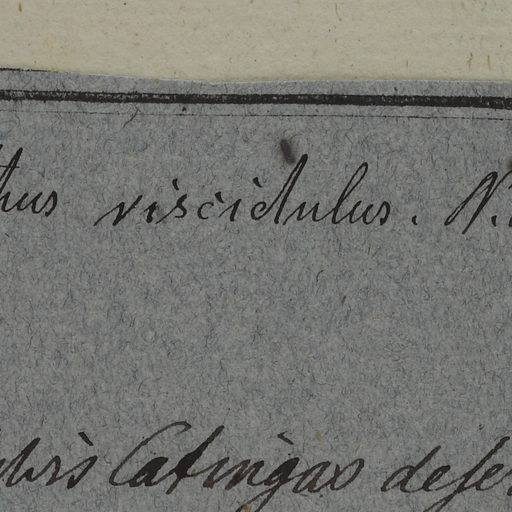 thus viscidulus. N.
Catingas dese